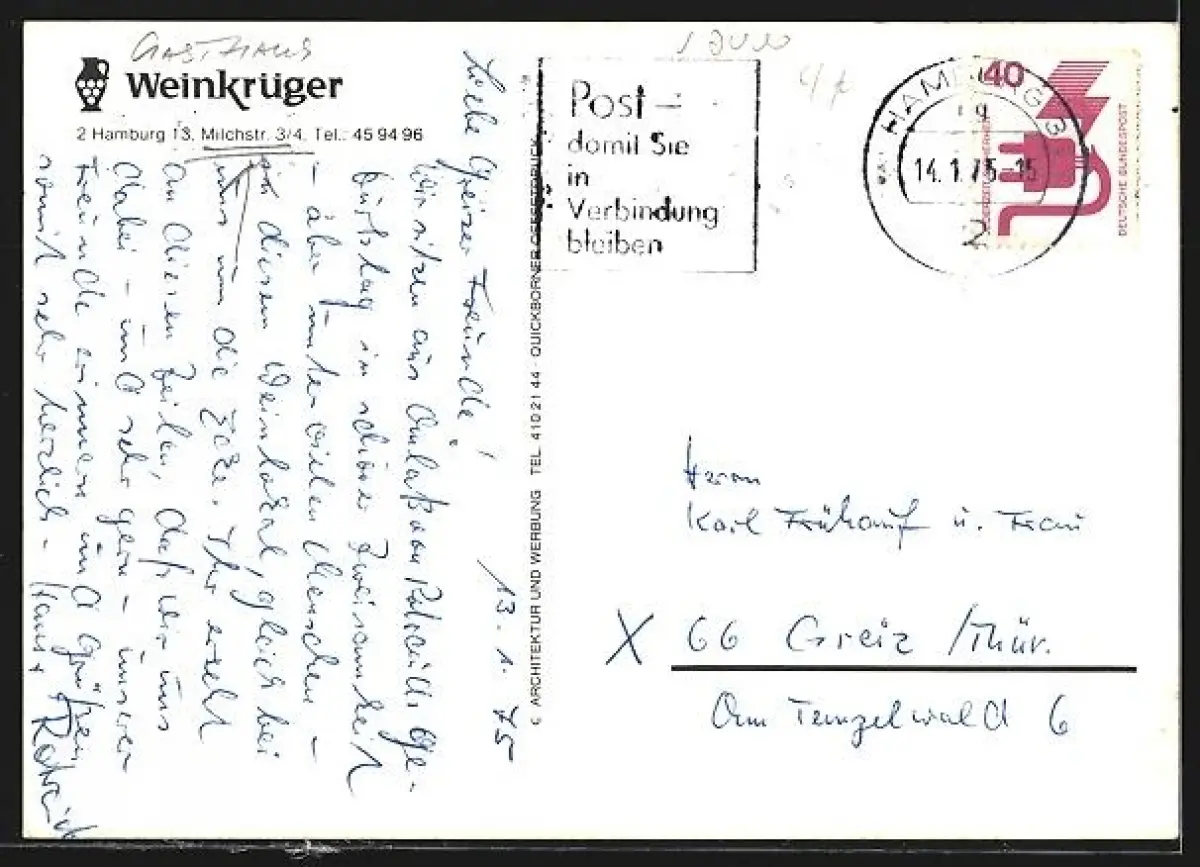 GASTHAUS
Weinkrüger
2 Hamburg 13, Milchstr. 3/4. Tel.: 45 94 96
Liebe Greizer Freunde!
13. 1. 75
Wir sitzen aus Anlaß von Patricia's Ge-
burtstag in schöner Zweisamkeit
- aber unter vielen Menschen -
in diesem Weinlokal, gleich bei
uns um die Ecke. Ihr erseht
an diesen Zeilen, daß wir uns
dabei - und sehr gern - unserer
Freunde erinnern und grüßen
somit sehr herzlich - Hans +
© ARCHITEKTUR UND WERBUNG TEL. 410 21 44 · QUICKBORNER OFFSETDRUCK
Post -
damit Sie
in
Verbindung
bleiben
HAMBURG 13
14. 1. 75-15
2
40
DEUTSCHE BUNDESPOST
Herrn
Karl Frühauf u. Frau
X 66 Greiz /Thür.
Am Tempelwald 6